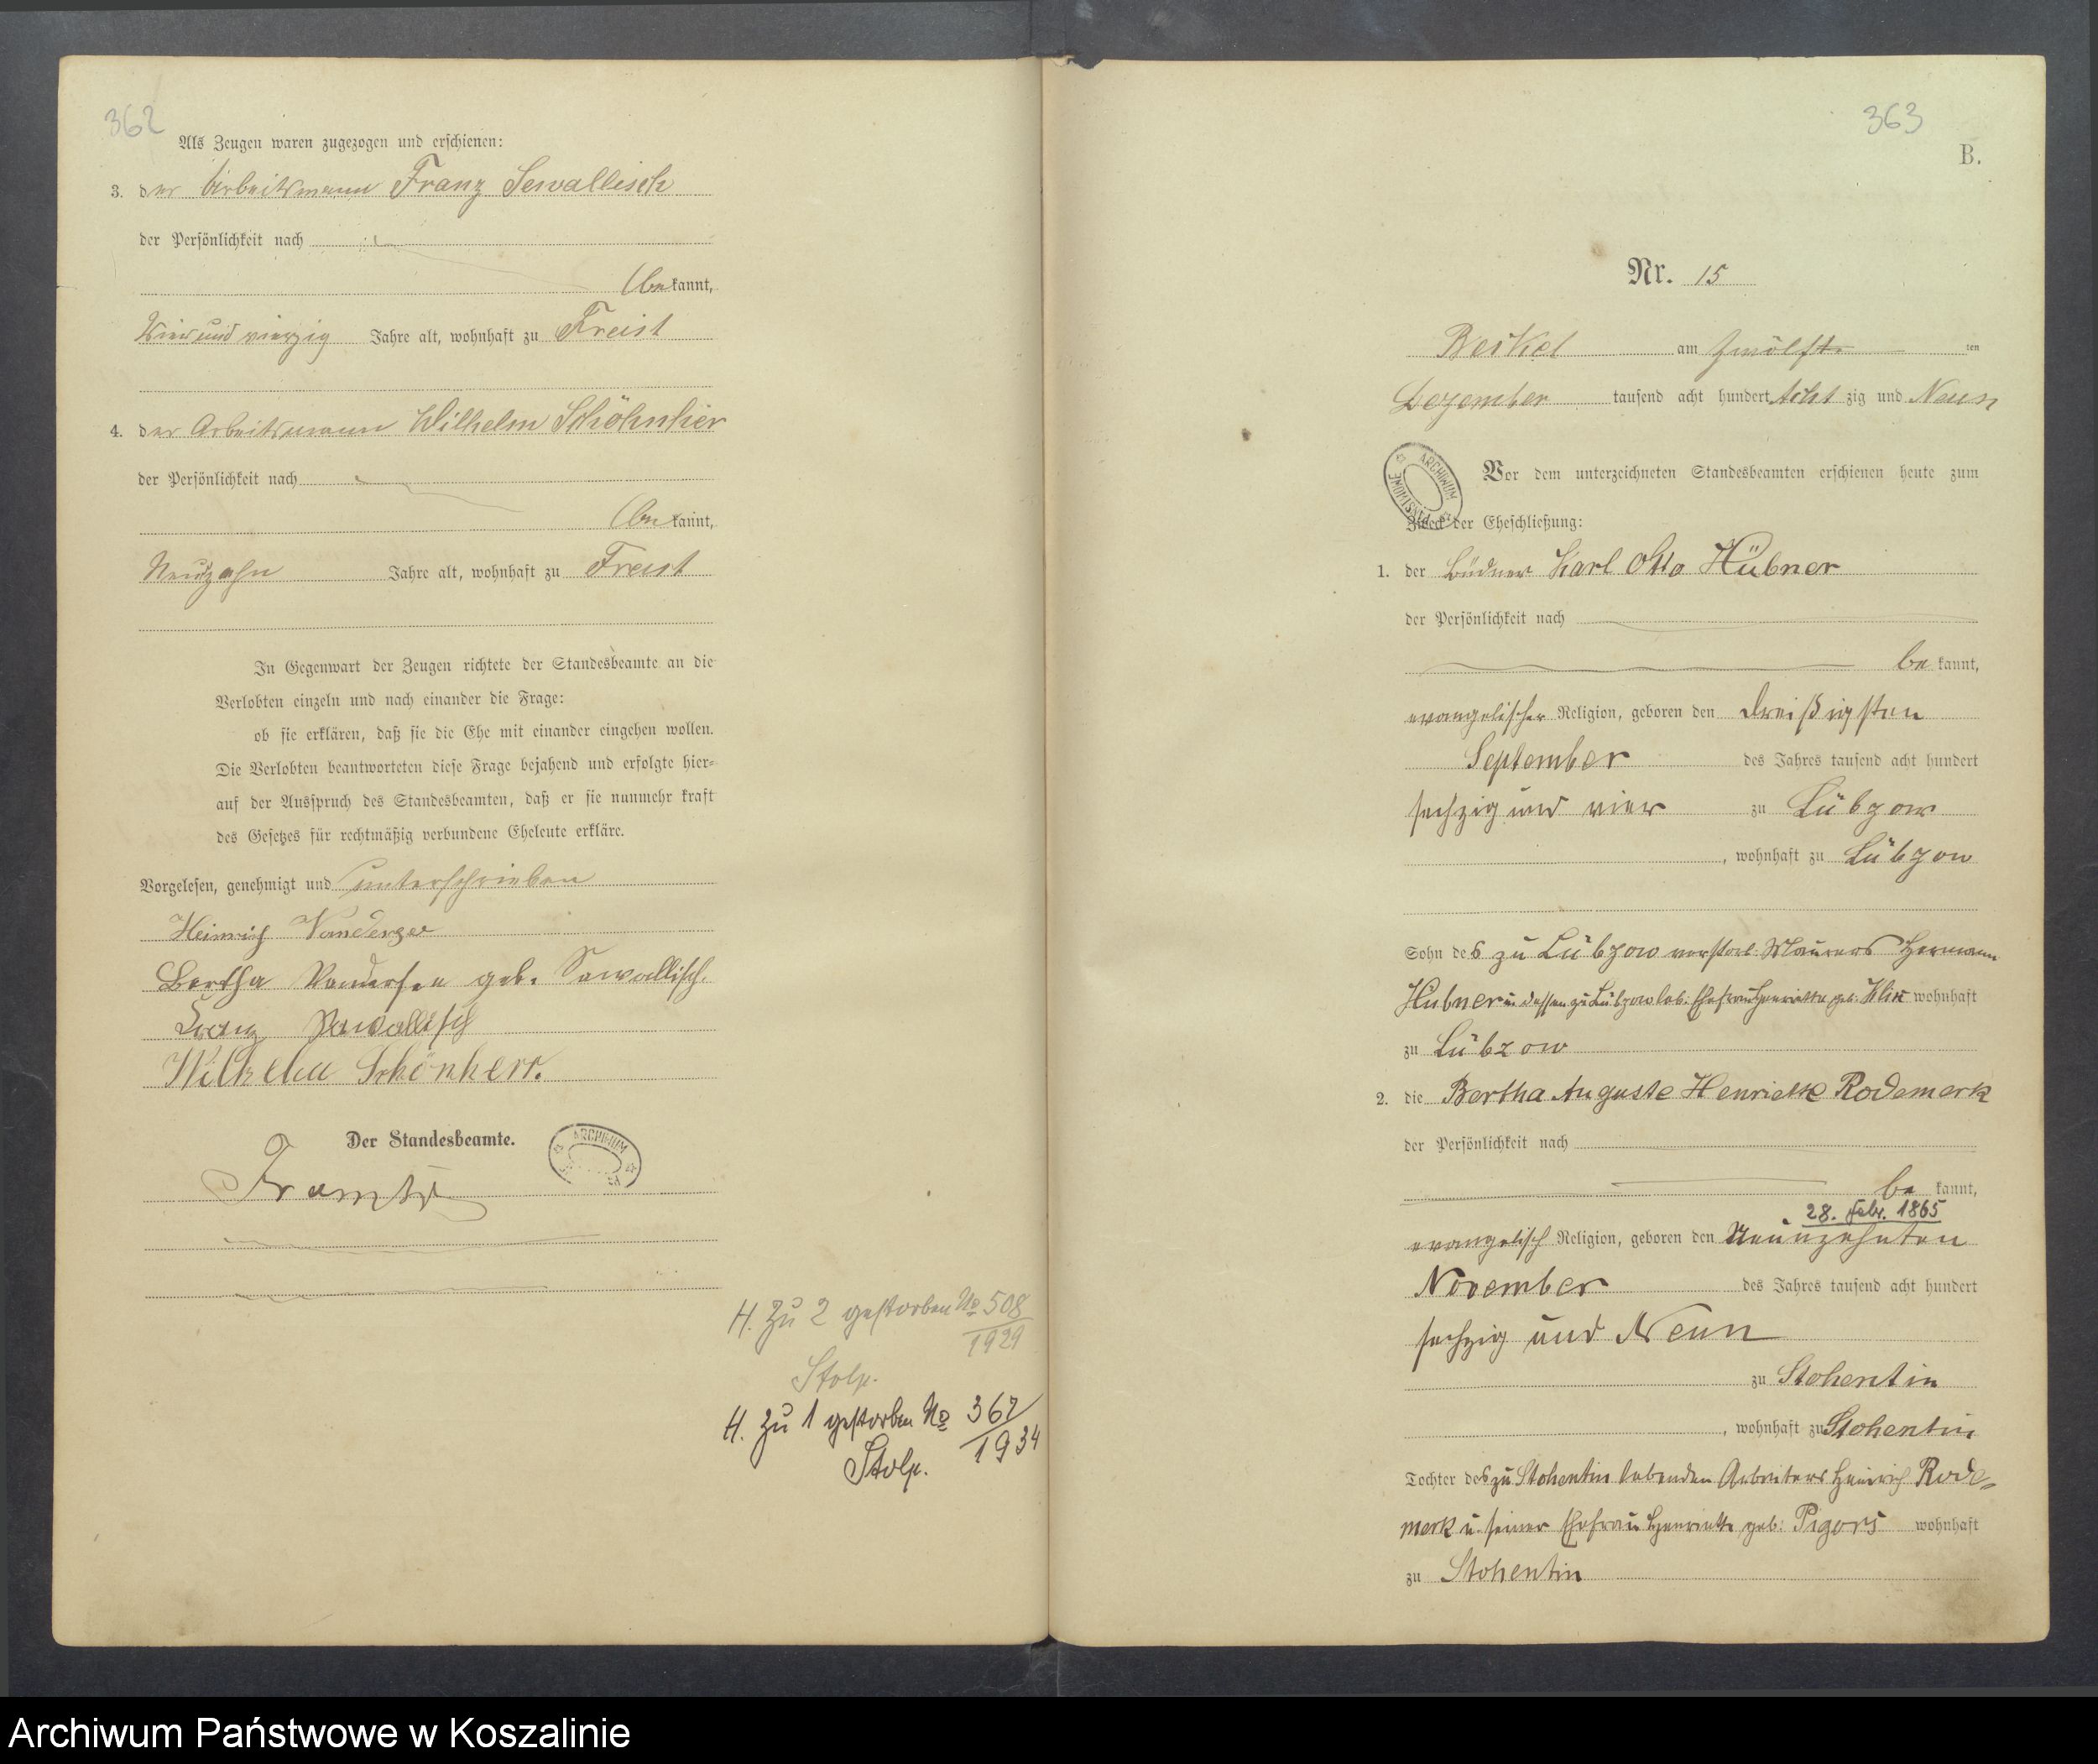 362
Als Zeugen waren zugezogen und erschienen:
3. der Arbeitsmann Franz Sewallisch
der Persönlichkeit nach
bekannt,
Vier und vierzig Jahre alt, wohnhaft zu Freist
4. der Arbeitsmann Wilhelm Schöhnherr
der Persönlichkeit nach
bekannt,
Neunzehn Jahre alt, wohnhaft zu Freist
In Gegenwart der Zeugen richtete der Standesbeamte an die
Verlobten einzeln und nach einander die Frage:
ob sie erklären, daß sie die Ehe mit einander eingehen wollen.
Die Verlobten beantworteten diese Frage bejahend und erfolgte hier=
auf der Ausspruch des Standesbeamten, daß er sie nunmehr kraft
des Gesetzes für rechtmäßig verbundene Eheleute erkläre.
Vorgelesen, genehmigt und unterschrieben
Heinrich
Bertha geb. Sawallisch.
Franz Sawallisch
Wilhelm Schönherr.
Der Standesbeamte.
ARCHIWUM
H. Zu 2 gestorben No 508
1929
Stolp.
H. Zu 1 gestorben No 367
1934
Stolp.
363
B.
Nr. 15
Beckel am zwölften
Dezember tausend acht hundert Acht zig und Neun
Vor dem unterzeichneten Standesbeamten erschienen heute zum
Zweck der Eheschließung:
ARCHIWUM PAŃSTWOWE
1. der Büdner Karl Otto Hübner
der Persönlichkeit nach
bekannt,
evangelischer Religion, geboren den dreißigsten
September des Jahres tausend acht hundert
sechzig und vier zu Lübzow
, wohnhaft zu Lübzow
Sohn des zu Lübzow verstorb. Maurers Hermann
Hübner u. dessen zu Lübzow leb. Ehefrau Henriette geb. wohnhaft
zu Lübzow
2. die Bertha Auguste Henriette Rodemerk
der Persönlichkeit nach
bekannt,
28. Febr. 1865
evangelisch Religion, geboren den Neunzehnten
November des Jahres tausend acht hundert
sechzig und Neun
zu Stohentin
, wohnhaft zu Stohentin
Tochter des zu Stohentin lebenden Arbeiters Heinrich Rode=
merk u. seiner Ehefrau Henriette geb. Pigors wohnhaft
zu Stohentin
Archiwum Państwowe w Koszalinie